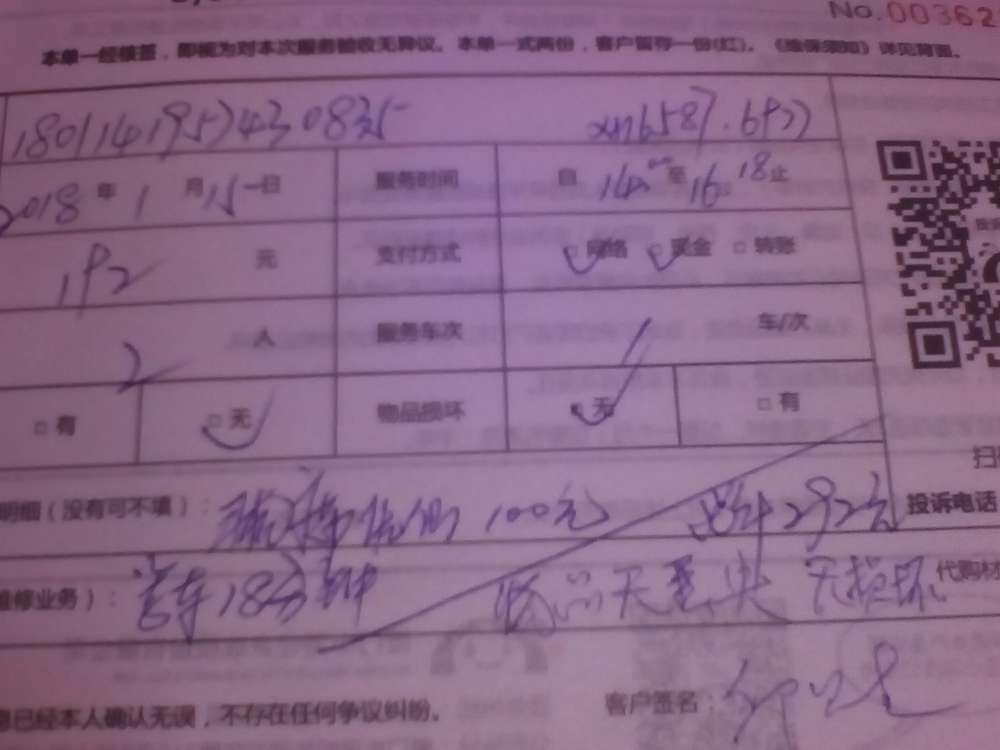 No.00362
本单一经核签，即视为对本次服务验收无异议。本单一式两份，客户留存一份(红)。《维保须知》详见背面。
180114195743 0835
2018 年 1 月 15 日 服务时间 自 14 00 至 16 18 止
192 元 支付方式 □ 网络 □ 现金 □ 转账
2 人 服务车次 1 车/次
□ 有 □ 无 物品损坏 □ 无 □ 有
明细（没有可不填）： 100元 292元
投诉电话
维修业务）： 等车18分钟 物品无丢失 无损坏
代购材
已经本人确认无误，不存在任何争议纠纷。
客户签名：